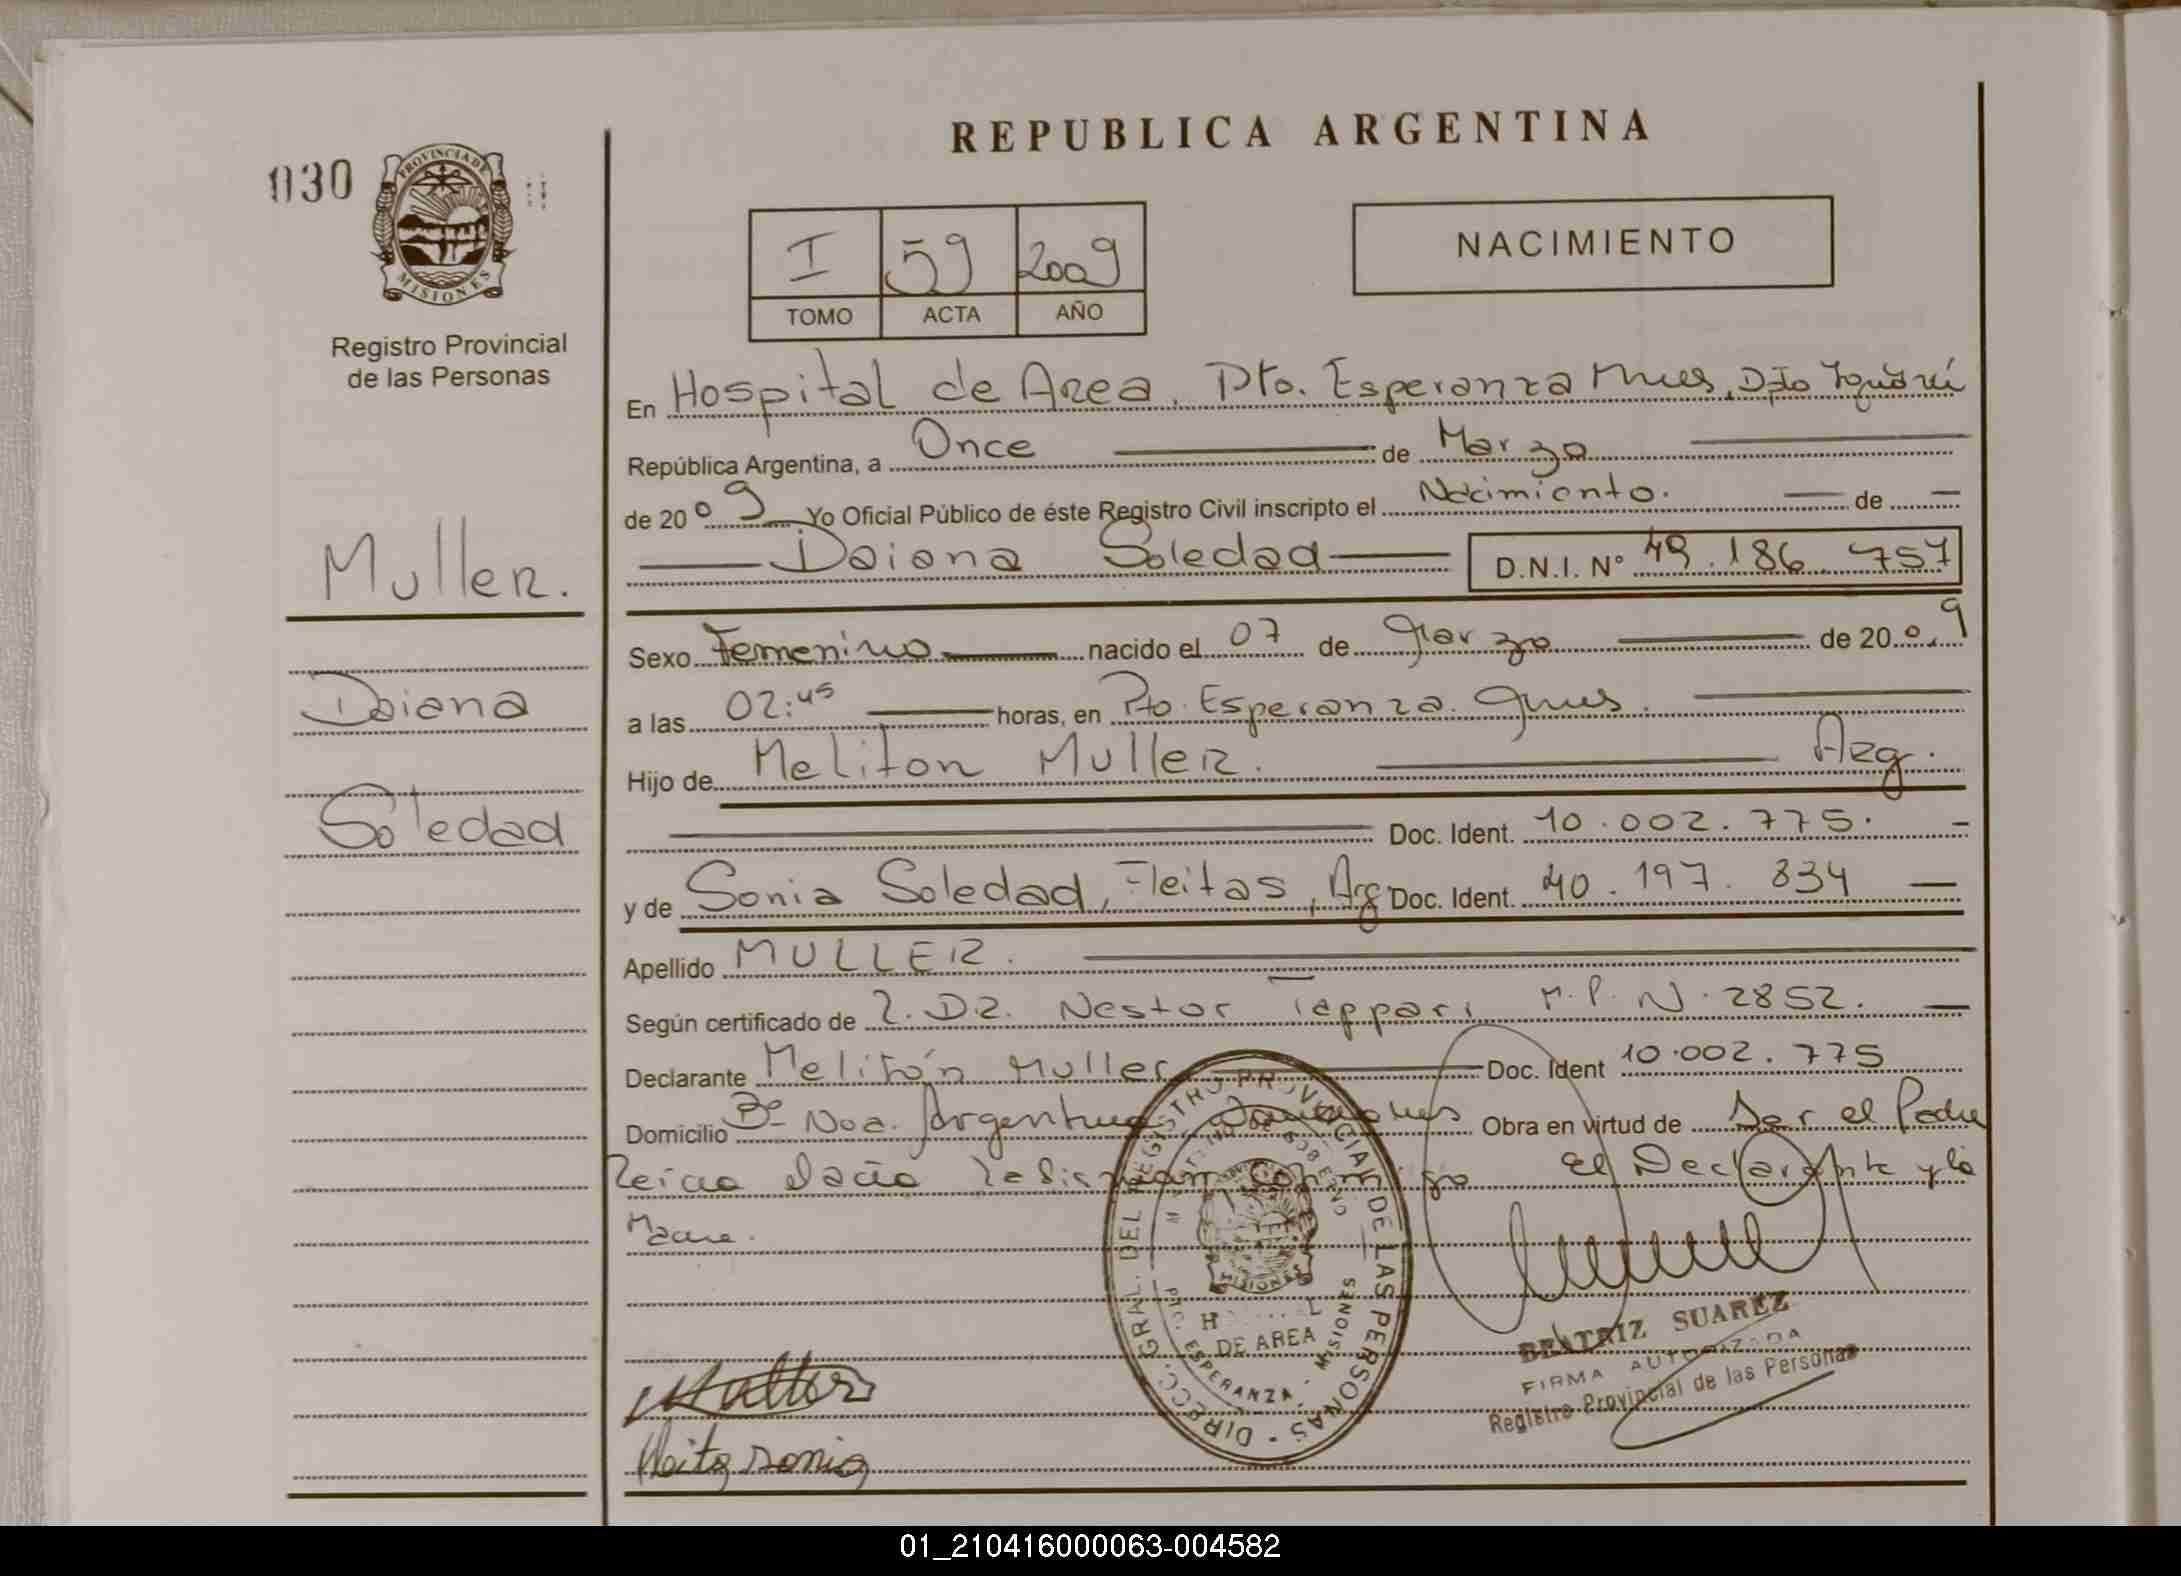 REPUBLICA ARGENTINA
030
PROVINCIA DE
MISIONES
Registro Provincial
de las Personas
I 59 2009
TOMO ACTA AÑO
NACIMIENTO
Muller.
Daiana
Soledad
En Hospital de Area, Pto. Esperanza Mnes, Dpto Iguazú
República Argentina, a Once de Marzo
de 2009 Yo Oficial Público de éste Registro Civil inscripto el Nacimiento. de
Daiana Soledad D.N.I. Nº 49.186.757
Sexo Femenino nacido el 07 de Marzo de 2009
a las 02:45 horas, en Pto. Esperanza. Mnes.
Hijo de Meliton Muller. Arg.
Doc. Ident. 10.002.775.
y de Sonia Soledad, Fleitas, Arg Doc. Ident. 40.197.834
Apellido MULLER.
Según certificado de Dr. Nestor M.P.N. 2852.
Declarante Melitón Muller Doc. Ident 10.002.775
Domicilio Bº Noa. Argentina Obra en virtud de Ser el Padre
conmigo El Declarante y la
Madre.
DIRECC. GRAL. DEL REGISTRO PROVINCIAL DE LAS PERSONAS
MISIONES
DE AREA
PTO. ESPERANZA - MISIONES
BEATRIZ SUAREZ
FIRMA AUTORIZADA
Registro Provincial de las Personas
Muller
sonia
01_210416000063-004582